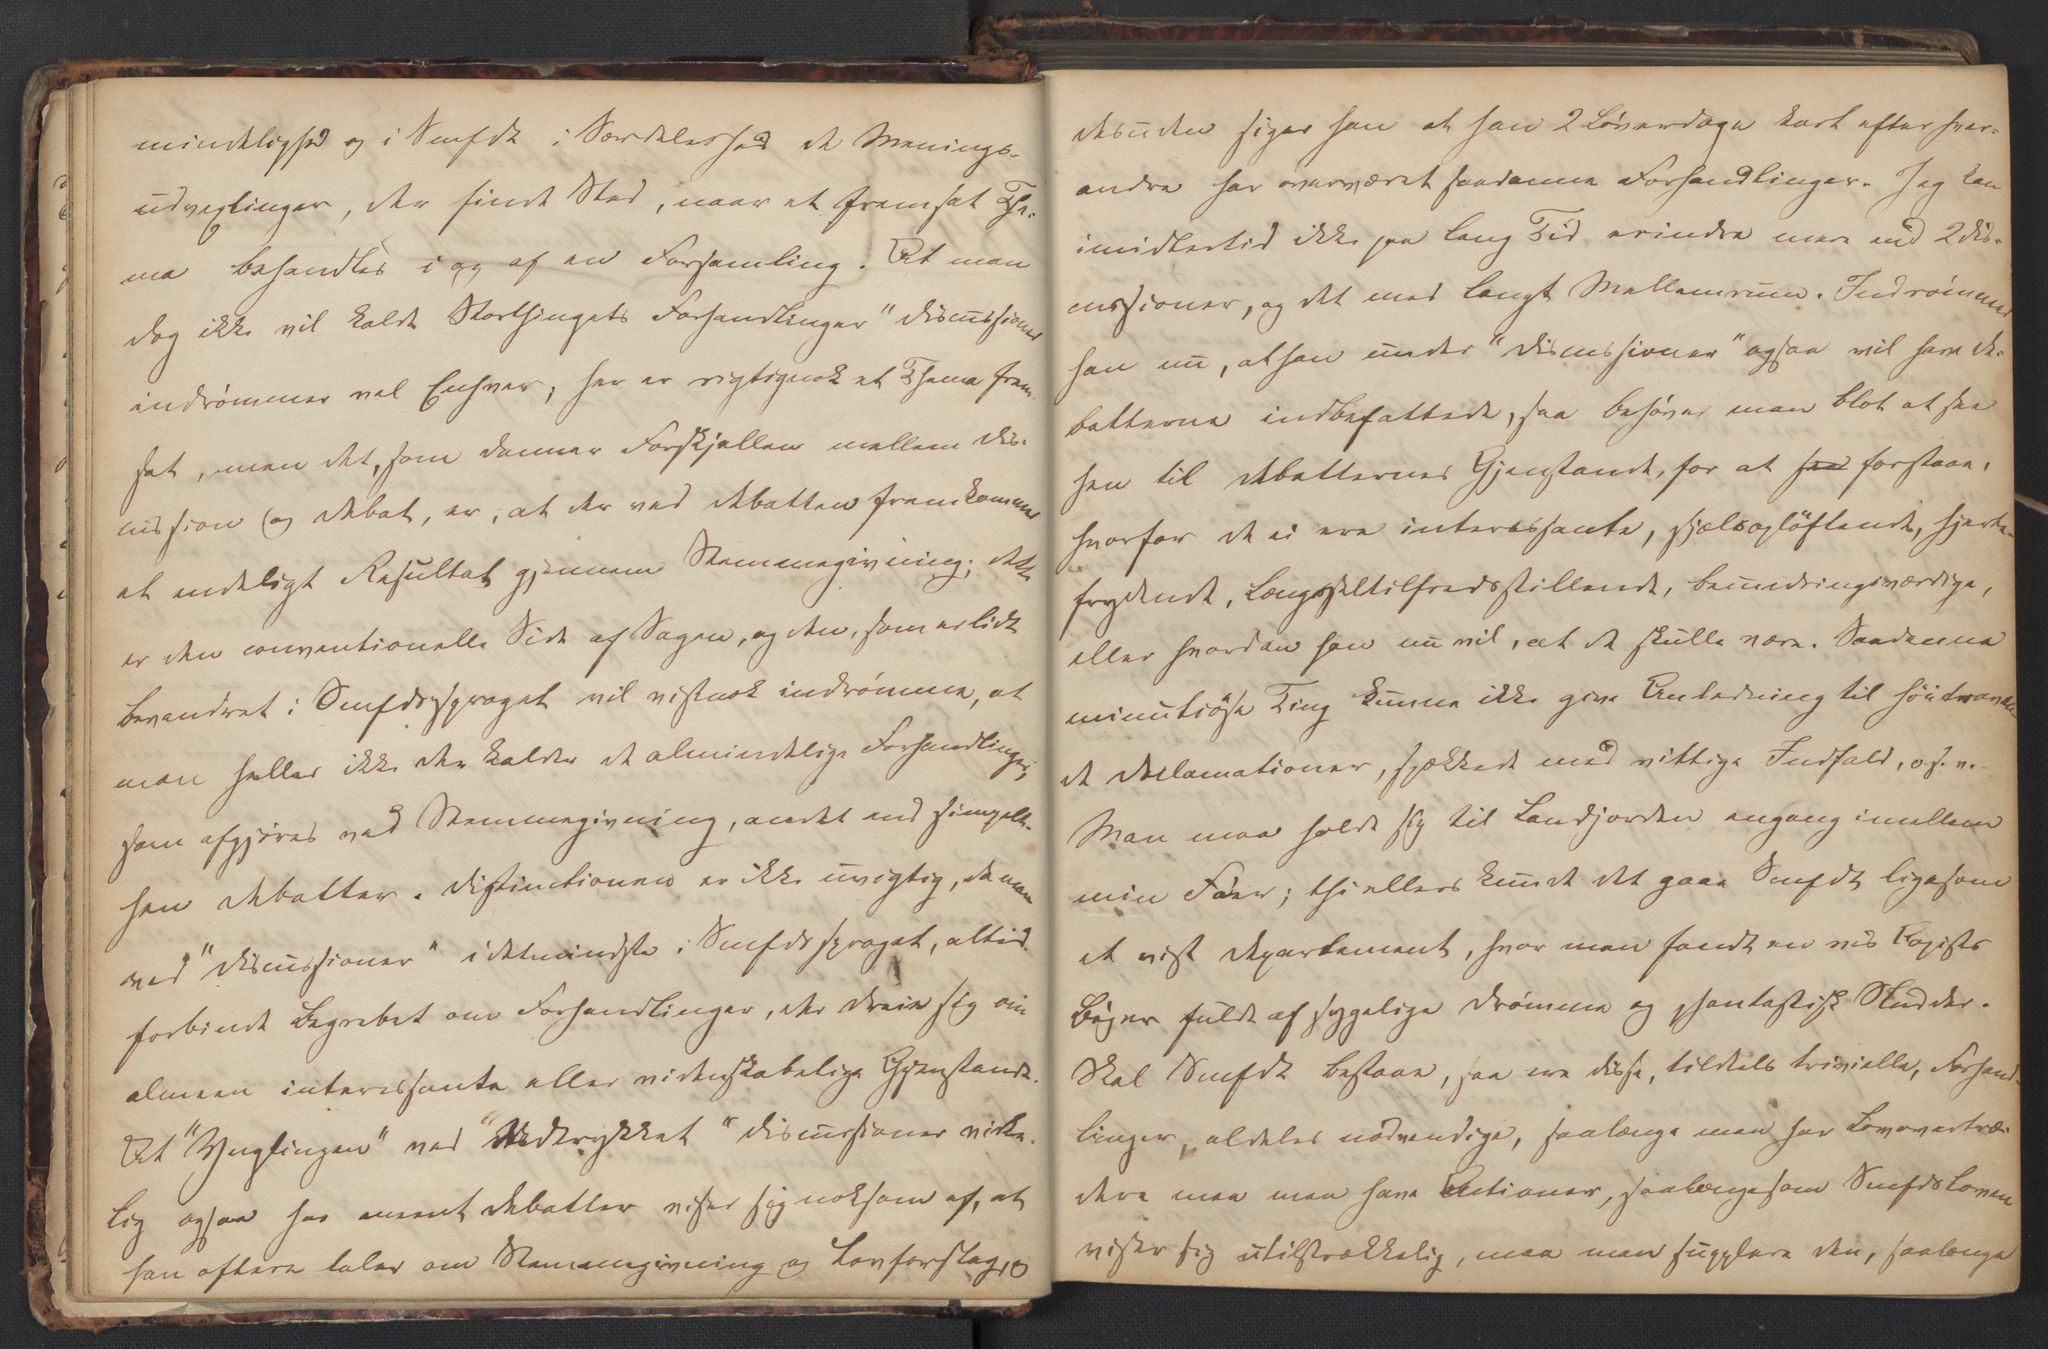 mindelighed og i Smfdt i Særdeleshed de Menings-
udvexlinger, der finde Sted, naar et fremsat The-
ma behandles i og af en Forsamling. At man
dog ikke vil kalde Storthingets Forhandlinger "Discussioner
indrømmer vel Enhver; her er rigtignok et Thema frem-
sat, men det, som danner Forskjellen mellem Dis-
cussion og Debat, er, at der ved Debatten fremkommer
et endeligt Resultat gjennem Stemmegivning; dette
er den conventionelle Side af Sagen, og den, som er lidt
bevandret i Smfdssproget vil vistnok indrømme, at
man heller ikke der kalder de almindelige Forhandlinger,
som afgjøres ved Stemmegivning, andet end simpelt-
hen Debatter. Distinctionen er ikke uvigtig, da man
ved "Discussioner" idetmindste i Smfdssproget, altid
forbinde Begrebet om Forhandlinger, der dreie sig om
almeen interessante eller videnskabelige Gjenstande.
At "Ynglingen" ved Udtrykket "Discussioner virke-
lig ogsaa har meent Debatter viser sig noksom af, at
han oftere taler om Stemmegivning og Lovforslag, o
desuden siger han at han 2 Løverdage kort efter hver-
andre har overværet saadanne Forhandlinger. Jeg kan
imidlertid ikke paa lang Tid erindre mere end 2 Dis-
cussioner, og det med langt Mellemrum. Indrømmer
han nu, at han under "Discussioner" ogsaa vil have De-
batterne indbefattede, saa behøver man blot at see
hen til Debatternes Gjenstande, for at saa forstaae,
hvorfor de ei ere interessante, sjælsopløftende, hjerte-
frydende, Længseltilfredsstillende, beundringsværdige,
eller hvordan han nu vil, at de skulle være. Saadanne
minutiøse Ting kunne ikke give Anledning til höitraven-
de Declamationer, spækkede med vittige Indfald, o.s.v.
Man maa holde sig til Landjorden engang imellem
min Faer; thi ellers kunde det gaae Smfdt ligesom
et vist Departement, hvor man fandt en vis Kopists
Bøger fulde af sygelige Drømme og phantastisk Sludder.
Skal Smfdt bestaae, saa ere disse, tildels trivielle, Forhand-
linger, aldeles nødvendige, saalænge man har Lovovertræ-
dere maa man have Actioner, saalængesom Smfdsloven
viser sig utilstrækkelig, maa man supplere den, saalænge